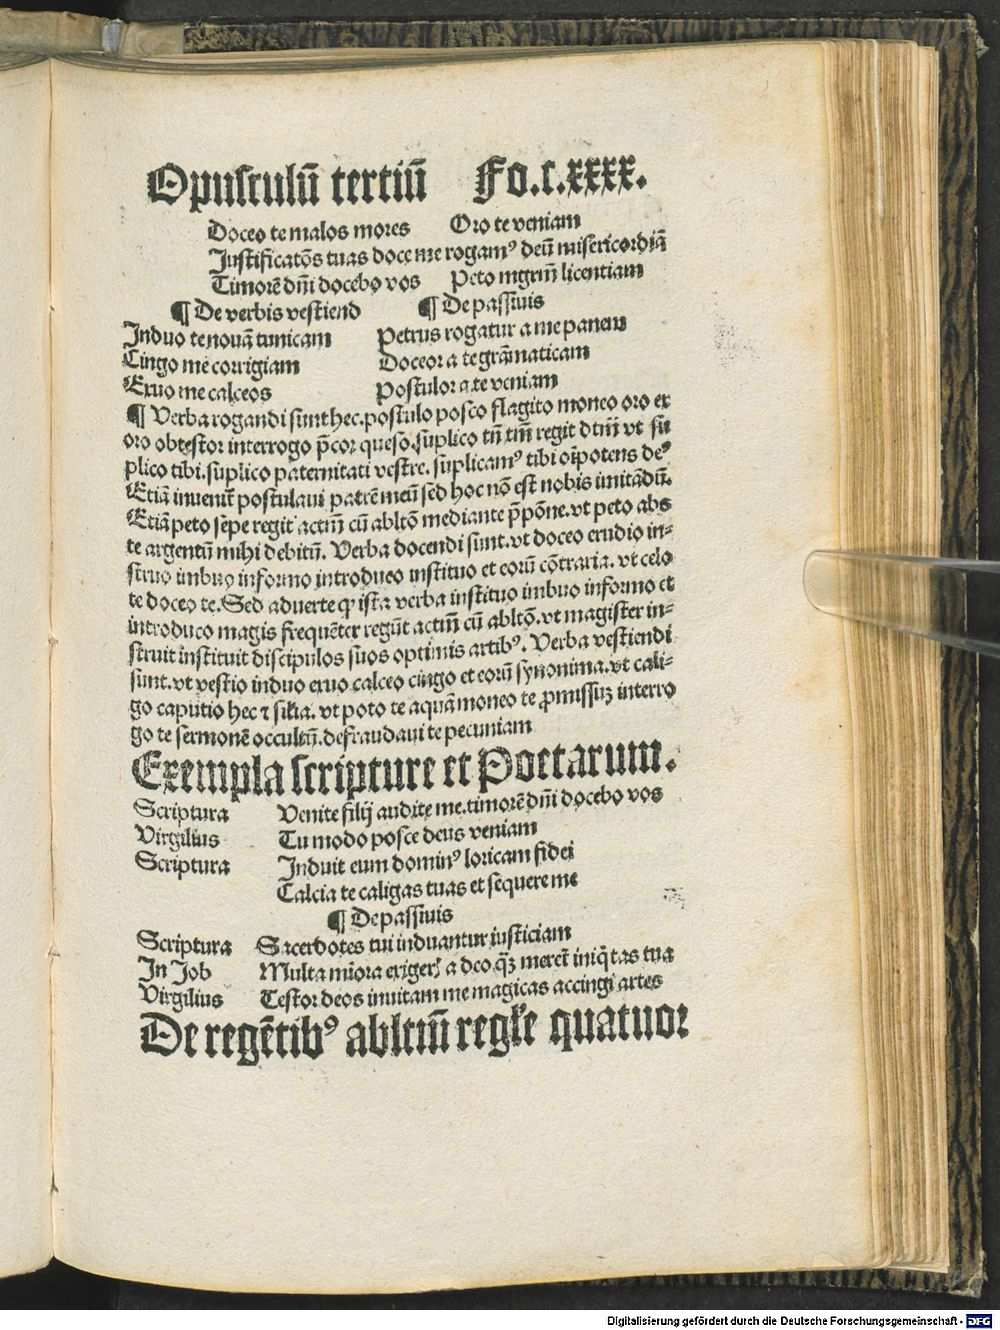 Opusculū tertiū Fo.c.xxxx.
Doceo te malos mores Oro te veniam
Justificatōs tuas doce me rogamꝰ deū misericordiā
Timorē dn̄i docebo vos Peto mgrm̄ licentiam
¶ De verbis vestiend ¶ De passiuis
Induo te nouā tunicam Petrus rogatur a me panem
Cingo me corrigiam Doceor a te grāmaticam
Exuo me calceos Postulor a te veniam
¶ Verba rogandi sunt hec. postulo posco flagito moneo oro ex
oro obtestor interrogo p̄cor queso. suplico tn̄ tm̄ regit dtm̄ vt su
plico tibi. suplico paternitati vestre. suplicamꝰ tibi oīpotens deꝰ
Etiā inuenit̄ postulaui patrē meū sed hoc nō est nobis imitādū.
Etiā peto sepe regit actm̄ cū abltō mediante p̄pōne. vt peto abs
te argentū mihi debitū. Verba docendi sunt. vt doceo erudio in-
struo imbuo informo introduco instituo et eorū cōtraria. vt celo
te doceo te. Sed aduerte ꝙ ista verba instituo imbuo informo et
introduco magis frequēter regūt actm̄ cū abltō. vt magister in-
struit instituit discipulos suos optimis artibꝰ. Verba vestiendi
sunt. vt vestio induo exuo calceo cingo et eorū synonima. vt cali-
go caputio hec ⁊ silia. vt poto te aquā moneo te ꝓmissuꝫ interro
go te sermonē occultū. defraudaui te pecuniam
Exempla scripture et Poetarum.
Scriptura Venite filij audite me. timorē dn̄i docebo vos
Virgilius Tu modo posce deus veniam
Scriptura Induit eum dominꝰ loricam fidei
Calcia te caligas tuas et sequere me
¶ De passiuis
Scriptura Sacerdotes tui induantur iusticiam
In Job Multa mīora exigerꝭ a deo q̄ꝫ meret̄ iniq̄tas tua
Virgilius Testor deos inuitam me magicas accingi artes
De regētibꝰ abltm̄ regl'e quatuor
Digitalisierung gefördert durch die Deutsche Forschungsgemeinschaft - DFG